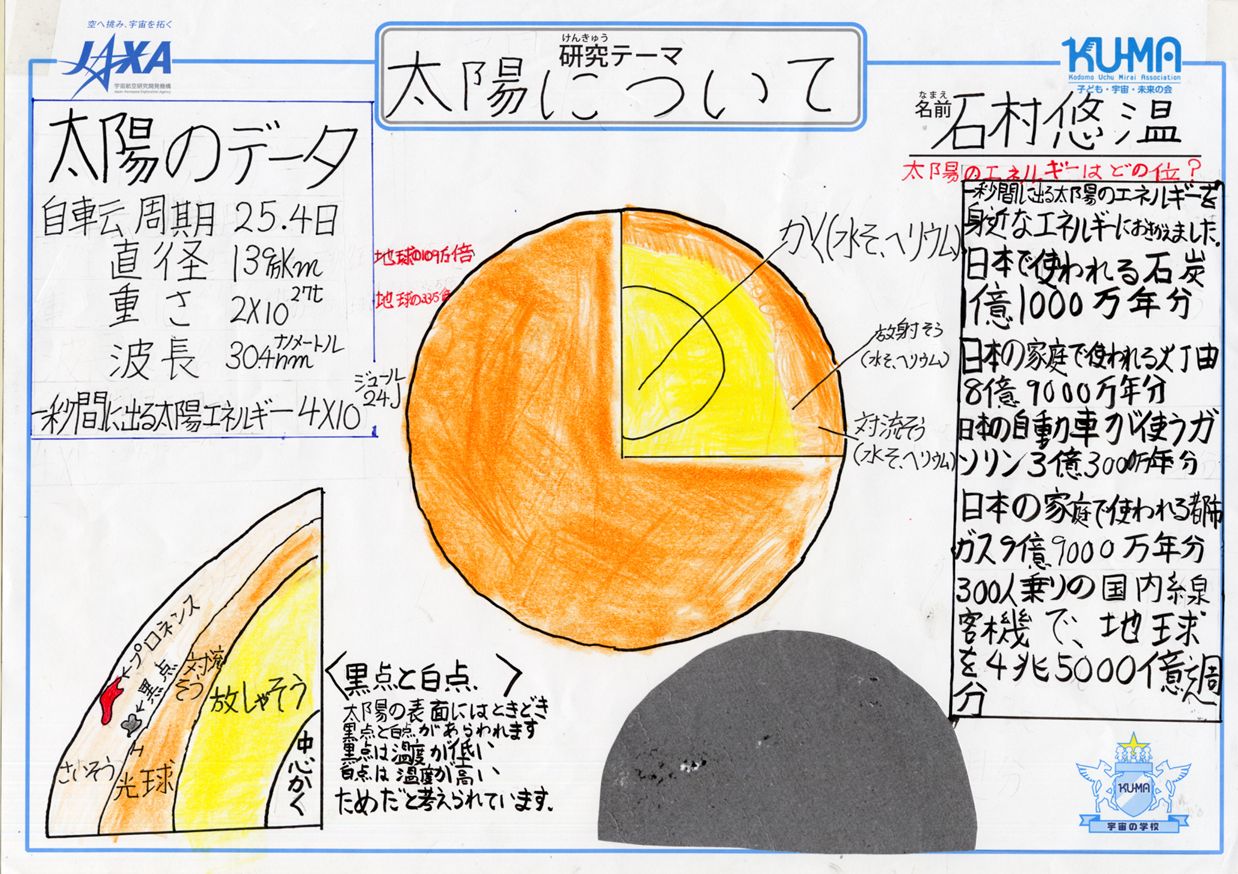 空へ挑み、宇宙を拓く
JAXA
宇宙航空研究開発機構
Japan Aerospace Exploration Agency
けんきゅう
研究テーマ
太陽について
KU-MA
Kodomo Uchu Mirai Association
子ども・宇宙・未来の会
なまえ
名前 石村悠温
太陽のデータ
自転周期 25.4日
直径 139万Km
地球の109万倍
重さ 2×10 27t
波長 304nm ナノメートル
一秒間に出る太陽エネルギー 4×10 24J ジュール
かく(水そ、ヘリウム)
放射そう
(水そ、ヘリウム)
対流そう
(水そ、ヘリウム)
太陽のエネルギーはどの位?
一秒間に出る太陽のエネルギーを
身近なエネルギにおきかえました。
日本で使われる石炭
1億1000万年分
日本の家庭で使われる灯由
8億9000万年分
日本の自動車が使うガ
ソリン3億3000万年分
日本の家庭で使われる都市
ガス9億9000万年分
300人乗りの国内線
客機で、地球
を4兆5000億周
分
←プロネンス
←黒点
対流
そう
放しゃそう
中心かく
さいそう
光球
<黒点と白点.>
太陽の表面にはときどき
黒点と白点があらわれます
黒点は温度が低い
白点は温度が高い
ためだと考えられています.
KUMA
宇宙の学校